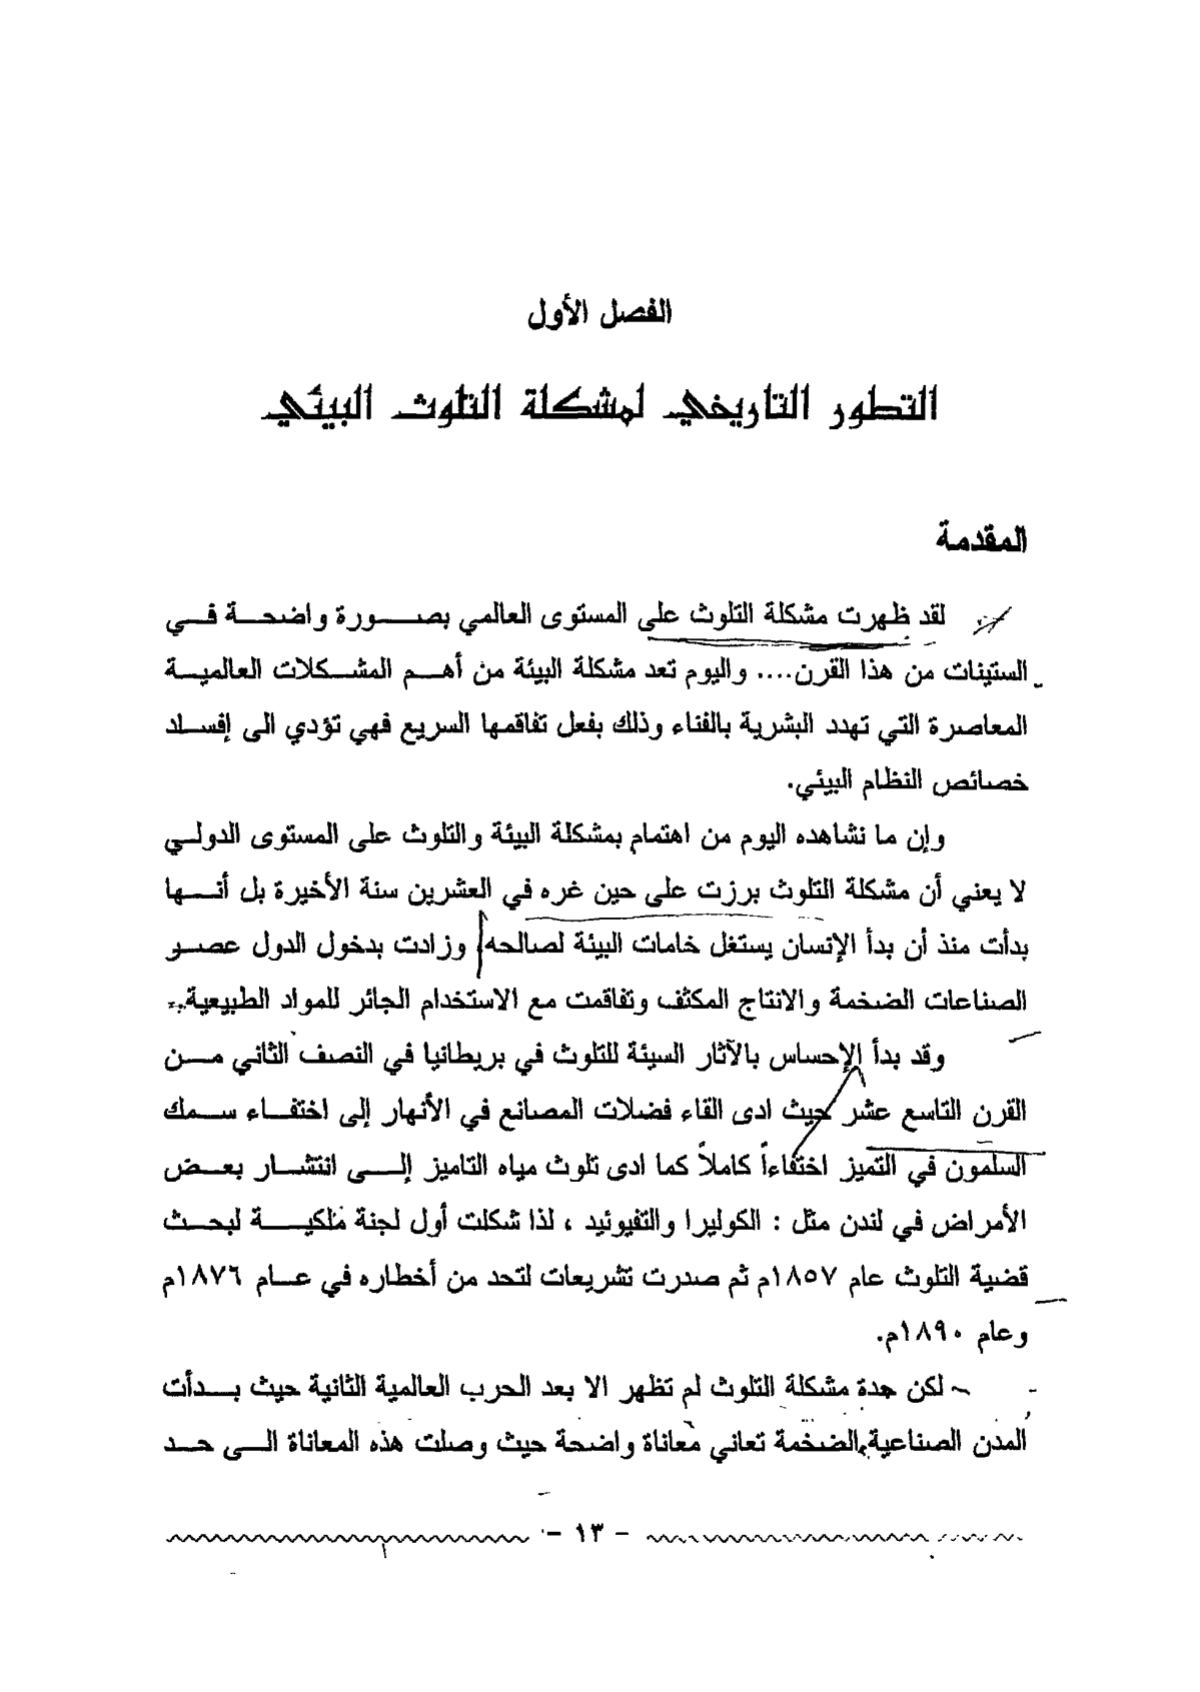 الفصل الأول
التطور التاريخي لمشكلة التلوث البيئي
المقدمة
لقد ظهرت مشكلة التلوث على المستوى العالمي بصورة واضحة في
الستينات من هذا القرن.... واليوم تعد مشكلة البيئة من أهم المشكلات العالمية
المعاصرة التي تهدد البشرية بالفناء وذلك بفعل تفاقمها السريع فهي تؤدي الى إفساد
خصائص النظام البيئي.
وإن ما نشاهده اليوم من اهتمام بمشكلة البيئة والتلوث على المستوى الدولي
لا يعني أن مشكلة التلوث برزت على حين غره في العشرين سنة الأخيرة بل أنها
بدأت منذ أن بدأ الإنسان يستغل خامات البيئة لصالحه، وزادت بدخول الدول عصر
الصناعات الضخمة والانتاج المكثف وتفاقمت مع الاستخدام الجائر للمواد الطبيعية..
وقد بدأ الإحساس بالآثار السيئة للتلوث في بريطانيا في النصف الثاني من
القرن التاسع عشر حيث ادى القاء فضلات المصانع في الأنهار إلى اختفاء سمك
السلمون في التميز اختفاءاً كاملاً كما ادى تلوث مياه التاميز إلى انتشار بعض
الأمراض في لندن مثل : الكوليرا والتفيوئيد ، لذا شكلت أول لجنة ملكية لبحث
قضية التلوث عام ١٨٥٧م ثم صدرت تشريعات لتحد من أخطاره في عام ١٨٧٦م
وعام ١٨٩٠م.
لكن حدة مشكلة التلوث لم تظهر الا بعد الحرب العالمية الثانية حيث بدأت
المدن الصناعية الضخمة تعاني معاناة واضحة حيث وصلت هذه المعاناة الى حد
- ١٣ -